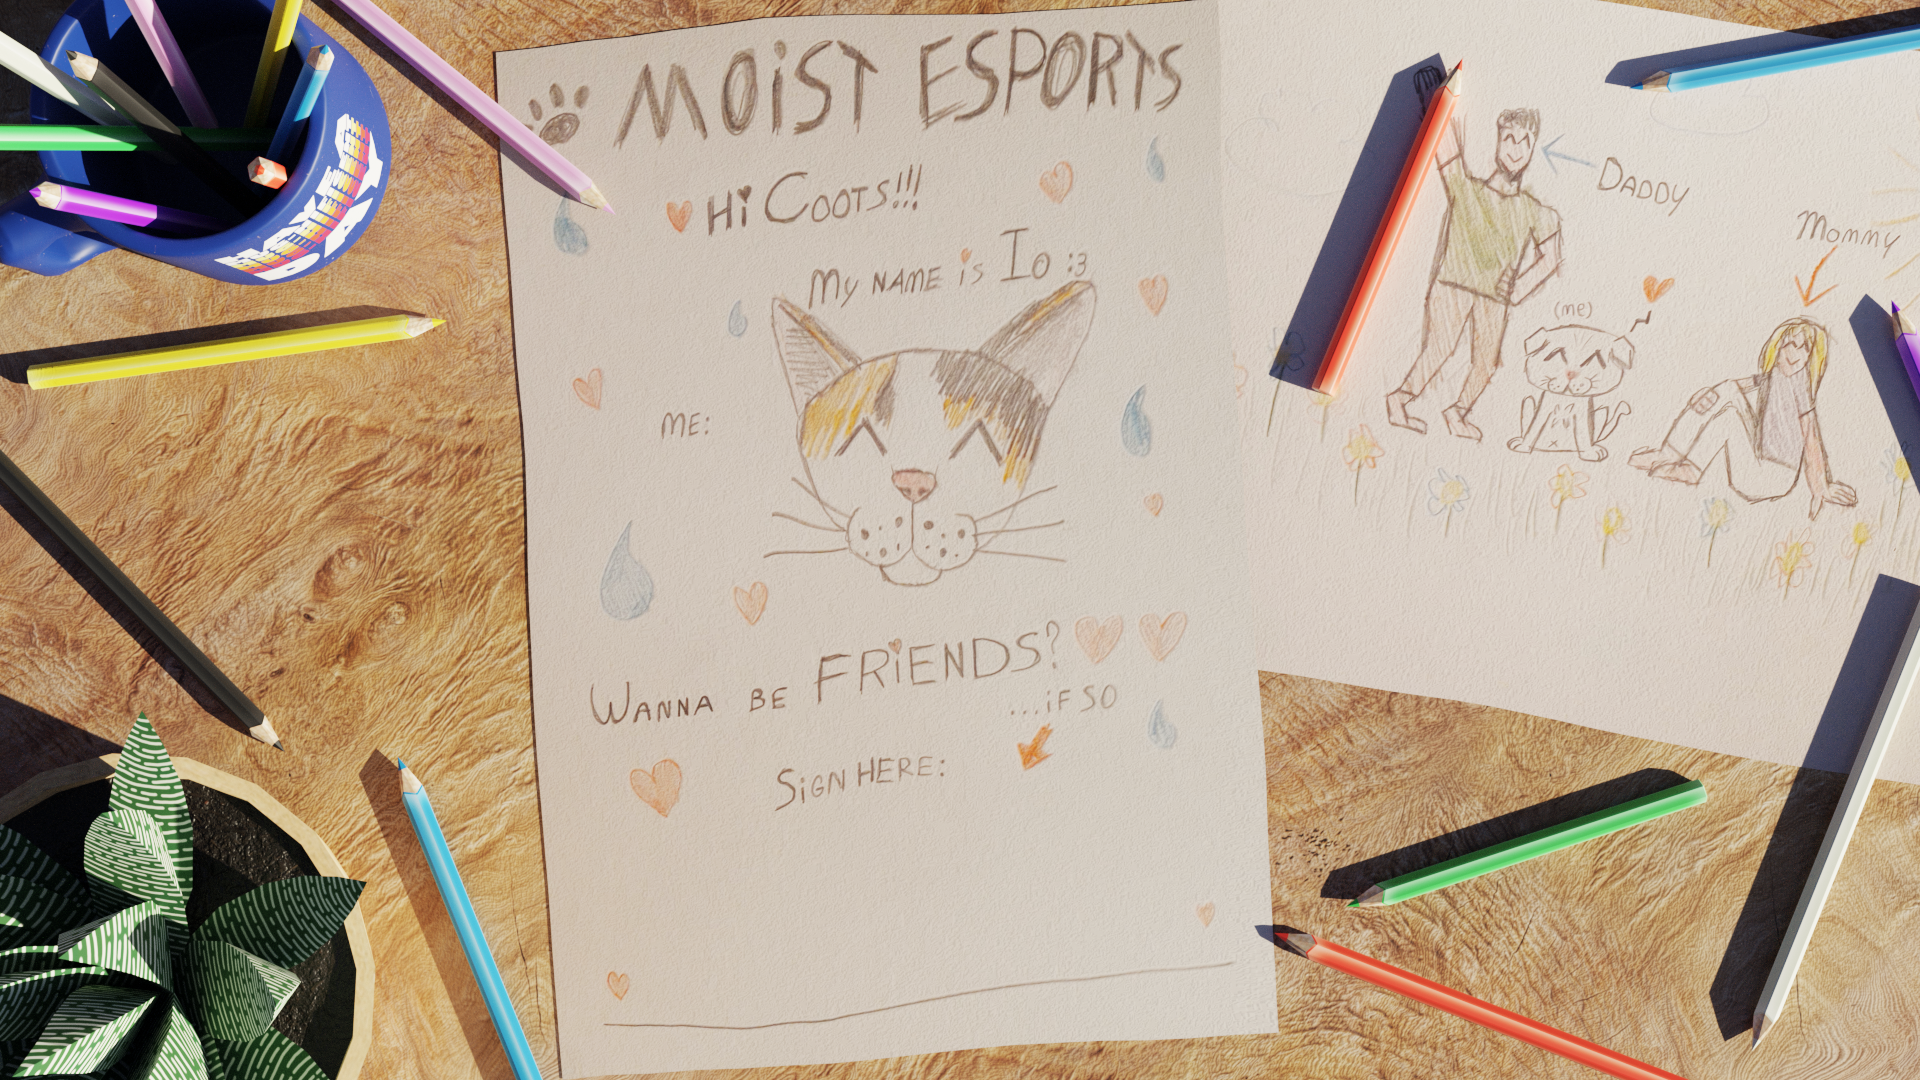 MOiST ESPORTS
Hi COOTS!!!
MY NAME iS IO :3
ME:
WANNA BE FRiENDS?
...iF SO
SiGN HERE:
DADDY
Mommy
(me)